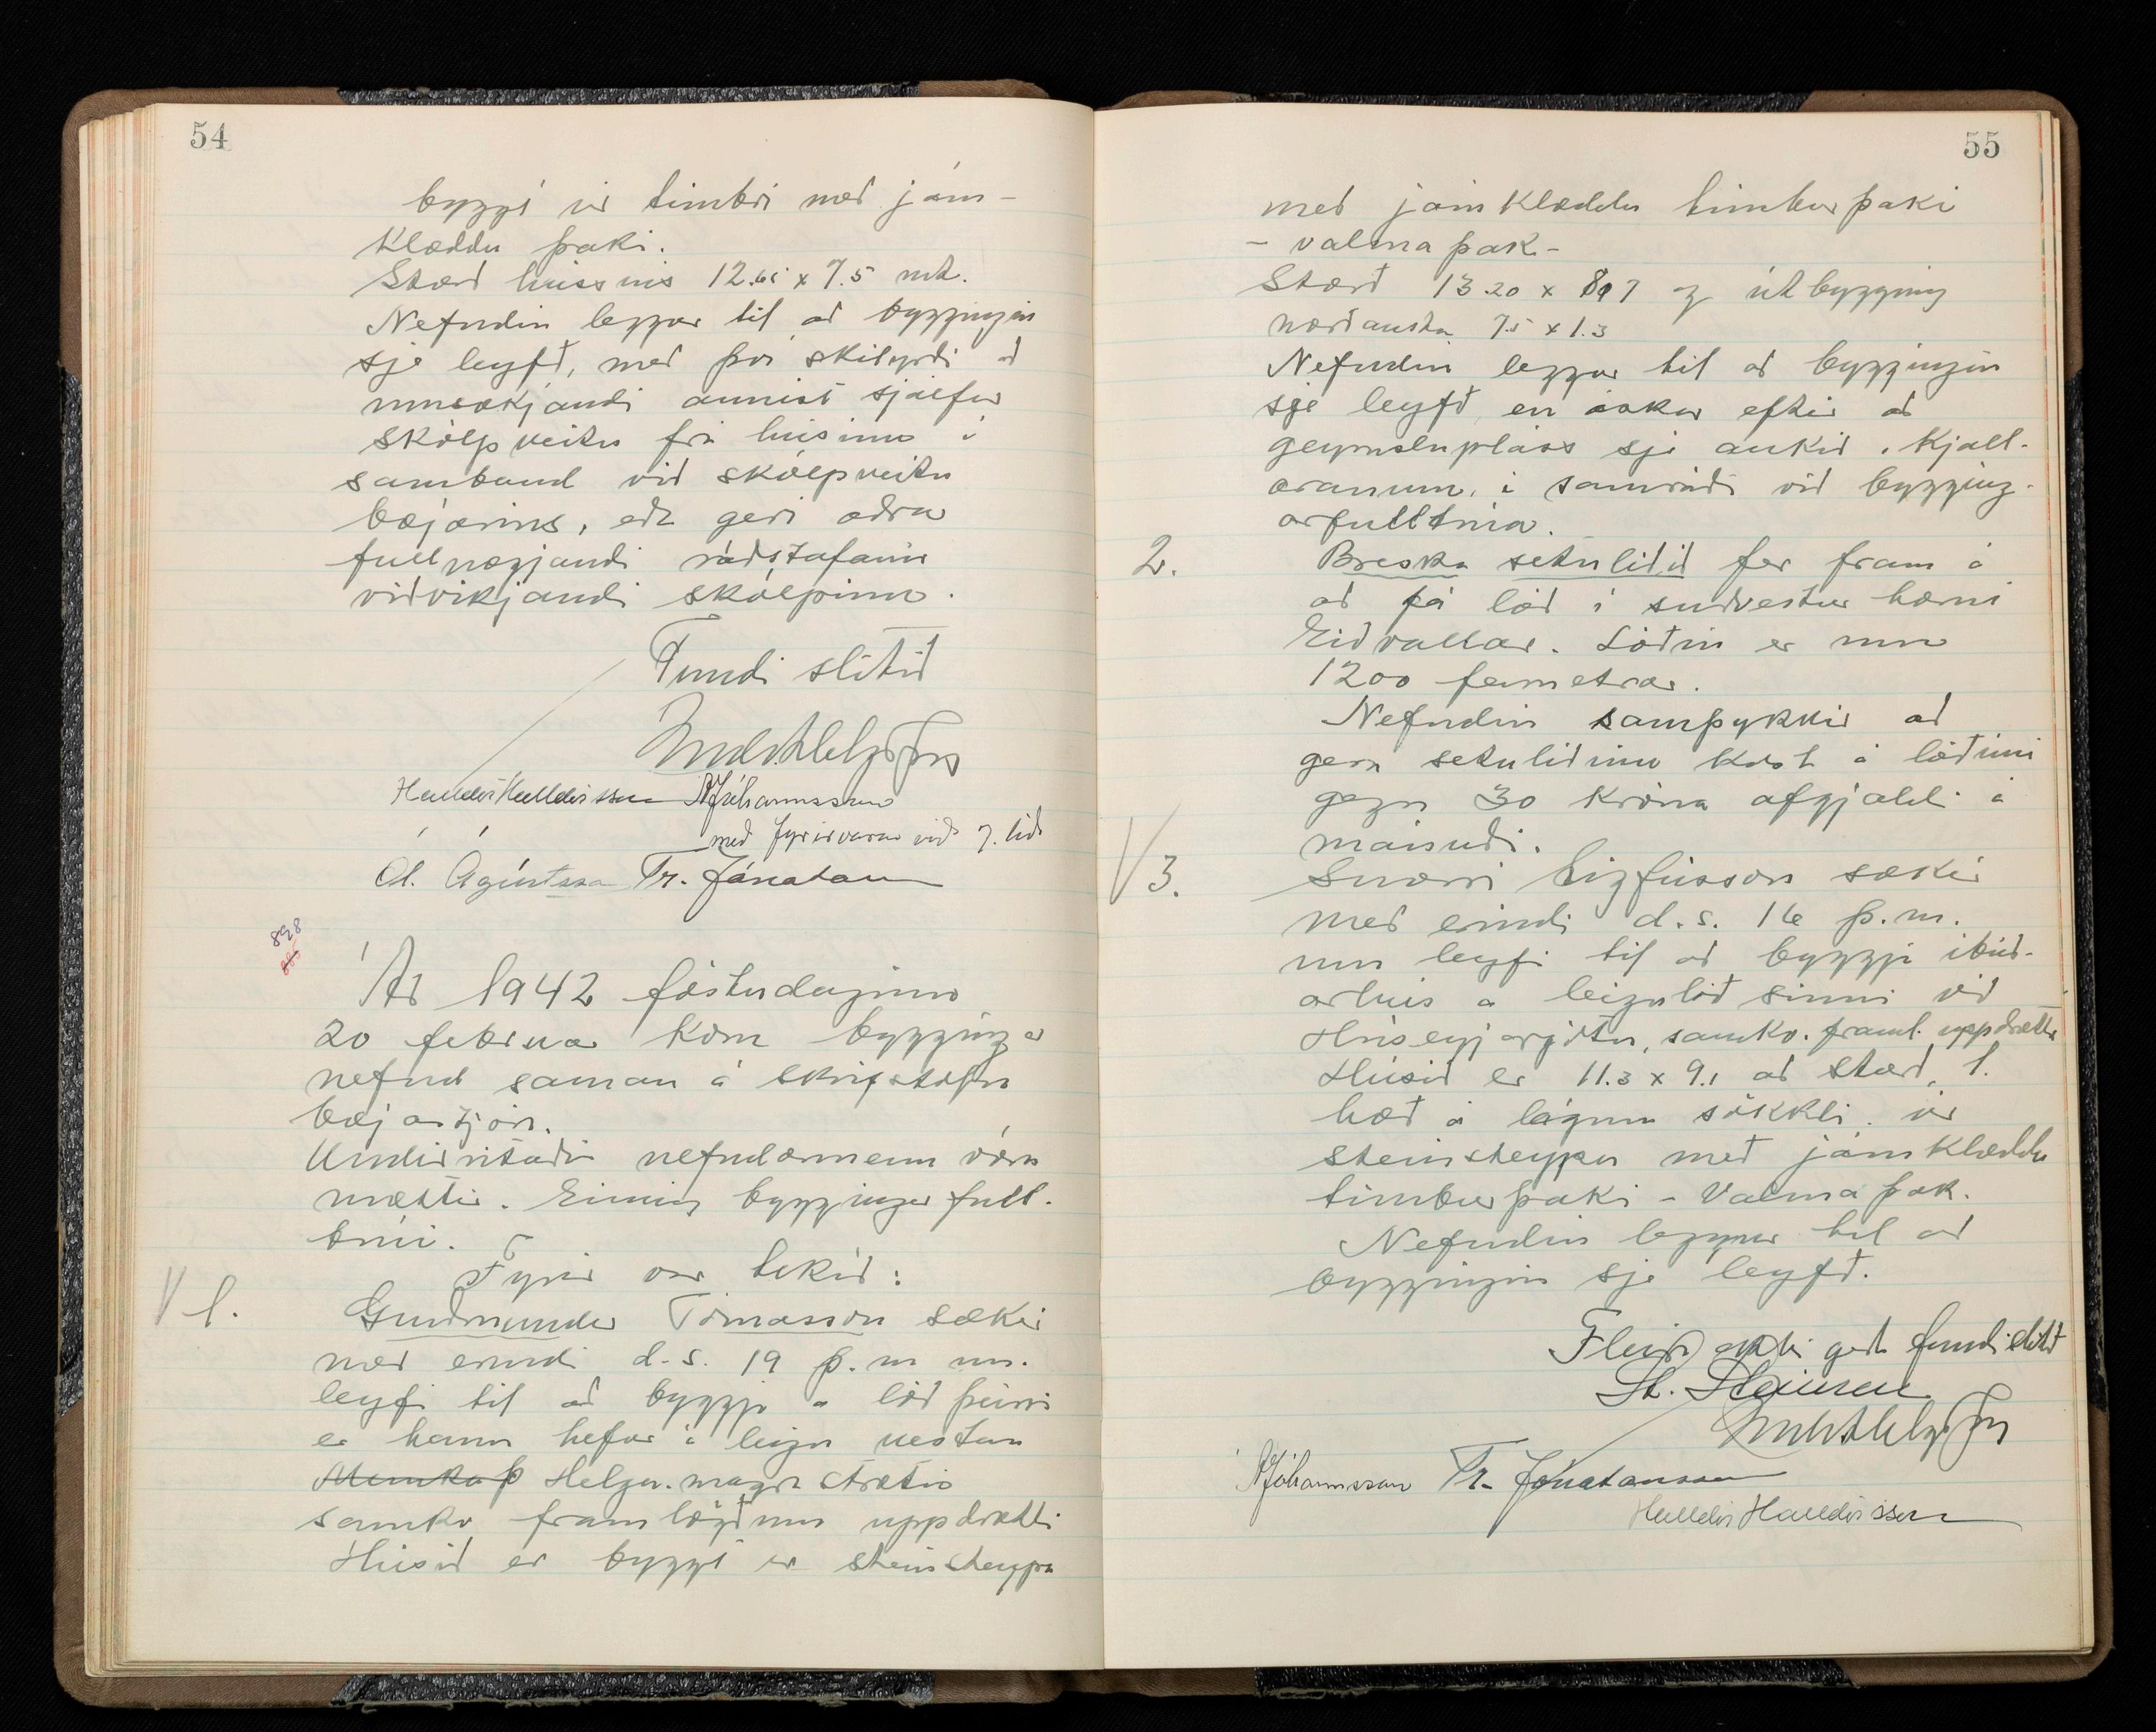 54
byggt úr timbri með járn-
klæddu þaki.
Stærð hússins 12.65 x 7.5 mt.
Nefndin leggur til að byggingin
sje leyfð, með því skilyrði að
umsækjandi annist sjálfur
skólpveitu frá húsinu í
samband við skólpveitu
bæjarins, eða geri aðrar
fullnægjandi ráðstafanir
viðvíkjandi skólpinu.
Fundi slitið
Halldór Halldórsson Á Jóhannsson
með fyrirvara við 7. lið
Ól. Ágústsson Tr. Jónatansson
898
885
Ár 1942 föstudaginn
20 febrúar kom bygginga
nefnd saman á skrifstofu
bæjarstjóra.
Undirritaðir nefndarmenn vóru
mættir. Einnig byggingarfull-
trúi.
Fyrir var tekið:
V 1.
Guðmundur Tómasson sækir
með erindi d.s. 19 þ.m um.
leyfi til að byggja á lóð þeirri
er hann hefur á leigu vestan
Munkaþ Helga-magra stræti
samkv framlögðum uppdrætti
Húsið er byggt úr steinsteypu
55
með járnklæddu timburþaki
- valmaþak -
Stærð 13.20 x 8.97 og útbygging
norðaustan 7.5 x 1.3
Nefndin leggur til að byggingin
sje leyfð en óskar eftir að
geymslupláss sje aukið í kjall-
aranum, í samráði við bygging-
arfulltrúa.
2.
Breska setuliðið fer fram á
að fá lóð í suðvestur horni
Eiðvallar. Lóðin er um
1200 fermetrar.
Nefndin samþykkir að
gera setuliðinu kost á lóðinni
gegn 30 króna afgjaldi á
mánuði.
V 3.
Snorri Sigfússon sækir
með erindi d.s. 16 þ.m.
um leyfi til að byggja íbúð-
arhús á leigulóð sinni við
Hríseyjargötu, samkv. framl. uppdrætti
Húsið er 11.3 x 9.1 að stærð, 1.
hæð á lágum sökkli úr
steinsteypu með járnklæddu
timburþaki - Valmaþak.
Nefndin leggur til að
byggingin sje leyfð.
Fleira ekki gert fundi slitið
St. Steinsen
Á Jóhannsson Tr. Jónatansson
Halldór Halldórsson